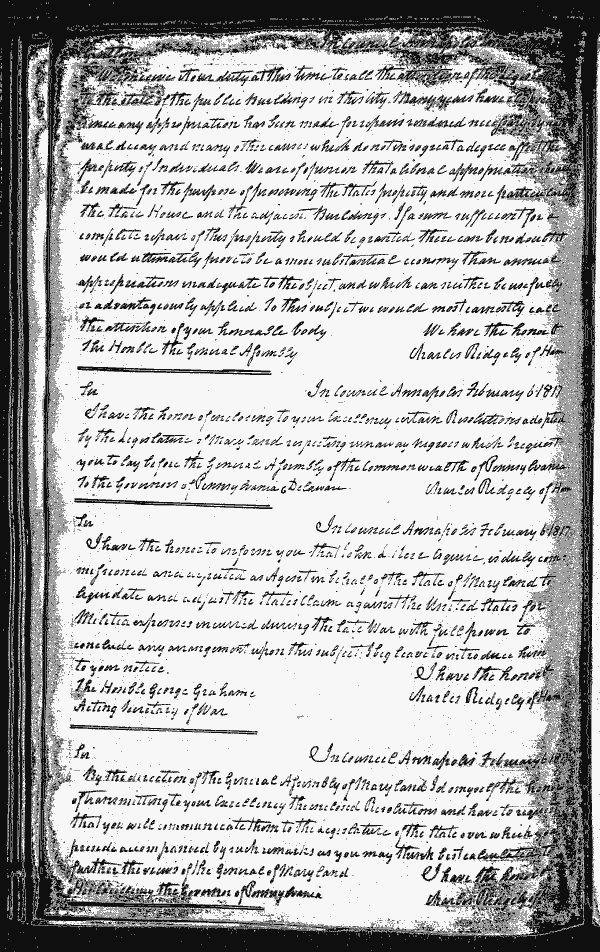 In Council Annapolis
We conceive it our duty at this time to call the attention of the Legislature
to the state of the public Buildings in this City. Many years have elapsed
since any appropriation has been made for repairs rendered necessary by
ural decay and many other causes which do not in so great a degree affect the
property of Individuals. We are of opinion that a liberal appropriation should
be made for the purpose of preserving the State's property and more particularly
the State House and the adjacent Buildings. If a sum sufficient for a
complete repair of this property should be granted, there can be no doubt it
would ultimately prove to be a more substantial economy than annual
appropriations inadequate to the object, and which can neither be usefully
or advantageously applied. To this subject we would most earnestly call
the attention of your honorable body. We have the honor &
The Honble the General Assembly Charles Ridgely of Ham
Sir In Council Annapolis February 6 1817
I have the honor of enclosing to your Excellency certain Resolutions adopted
by the Legislature of Maryland respecting runaway negroes which I request
you to lay before the General Assembly of the Commonwealth of Pennsylvania
To the Governors of Pennsylvania & Delaware Charles Ridgely of Ham
Sir In Council Annapolis February 6 1817
I have the honor to inform you that John Esquire, is duly com-
missioned and deputed as Agent in behalf of the State of Maryland to
liquidate and adjust the States Claim against the United States for
Militia expenses incurred during the late War with full power to
conclude any arrangement upon this subject. I beg leave to introduce him
to your notice. I have the honor &
The Honble George Grahame Charles Ridgely of Ham
Acting Secretary of War
Sir In Council Annapolis February 6 181
By the direction of the General Assembly of Maryland I do myself the honor
of transmitting to your Excellency the enclosed Resolutions and have to request
that you will communicate them to the Legislature of the State over which you
preside accompanied by such remarks as you may think best calculated to
further the views of the General of Maryland I have the honor
His Excellency the Governor of Pennsylvania Charles Ridgely of